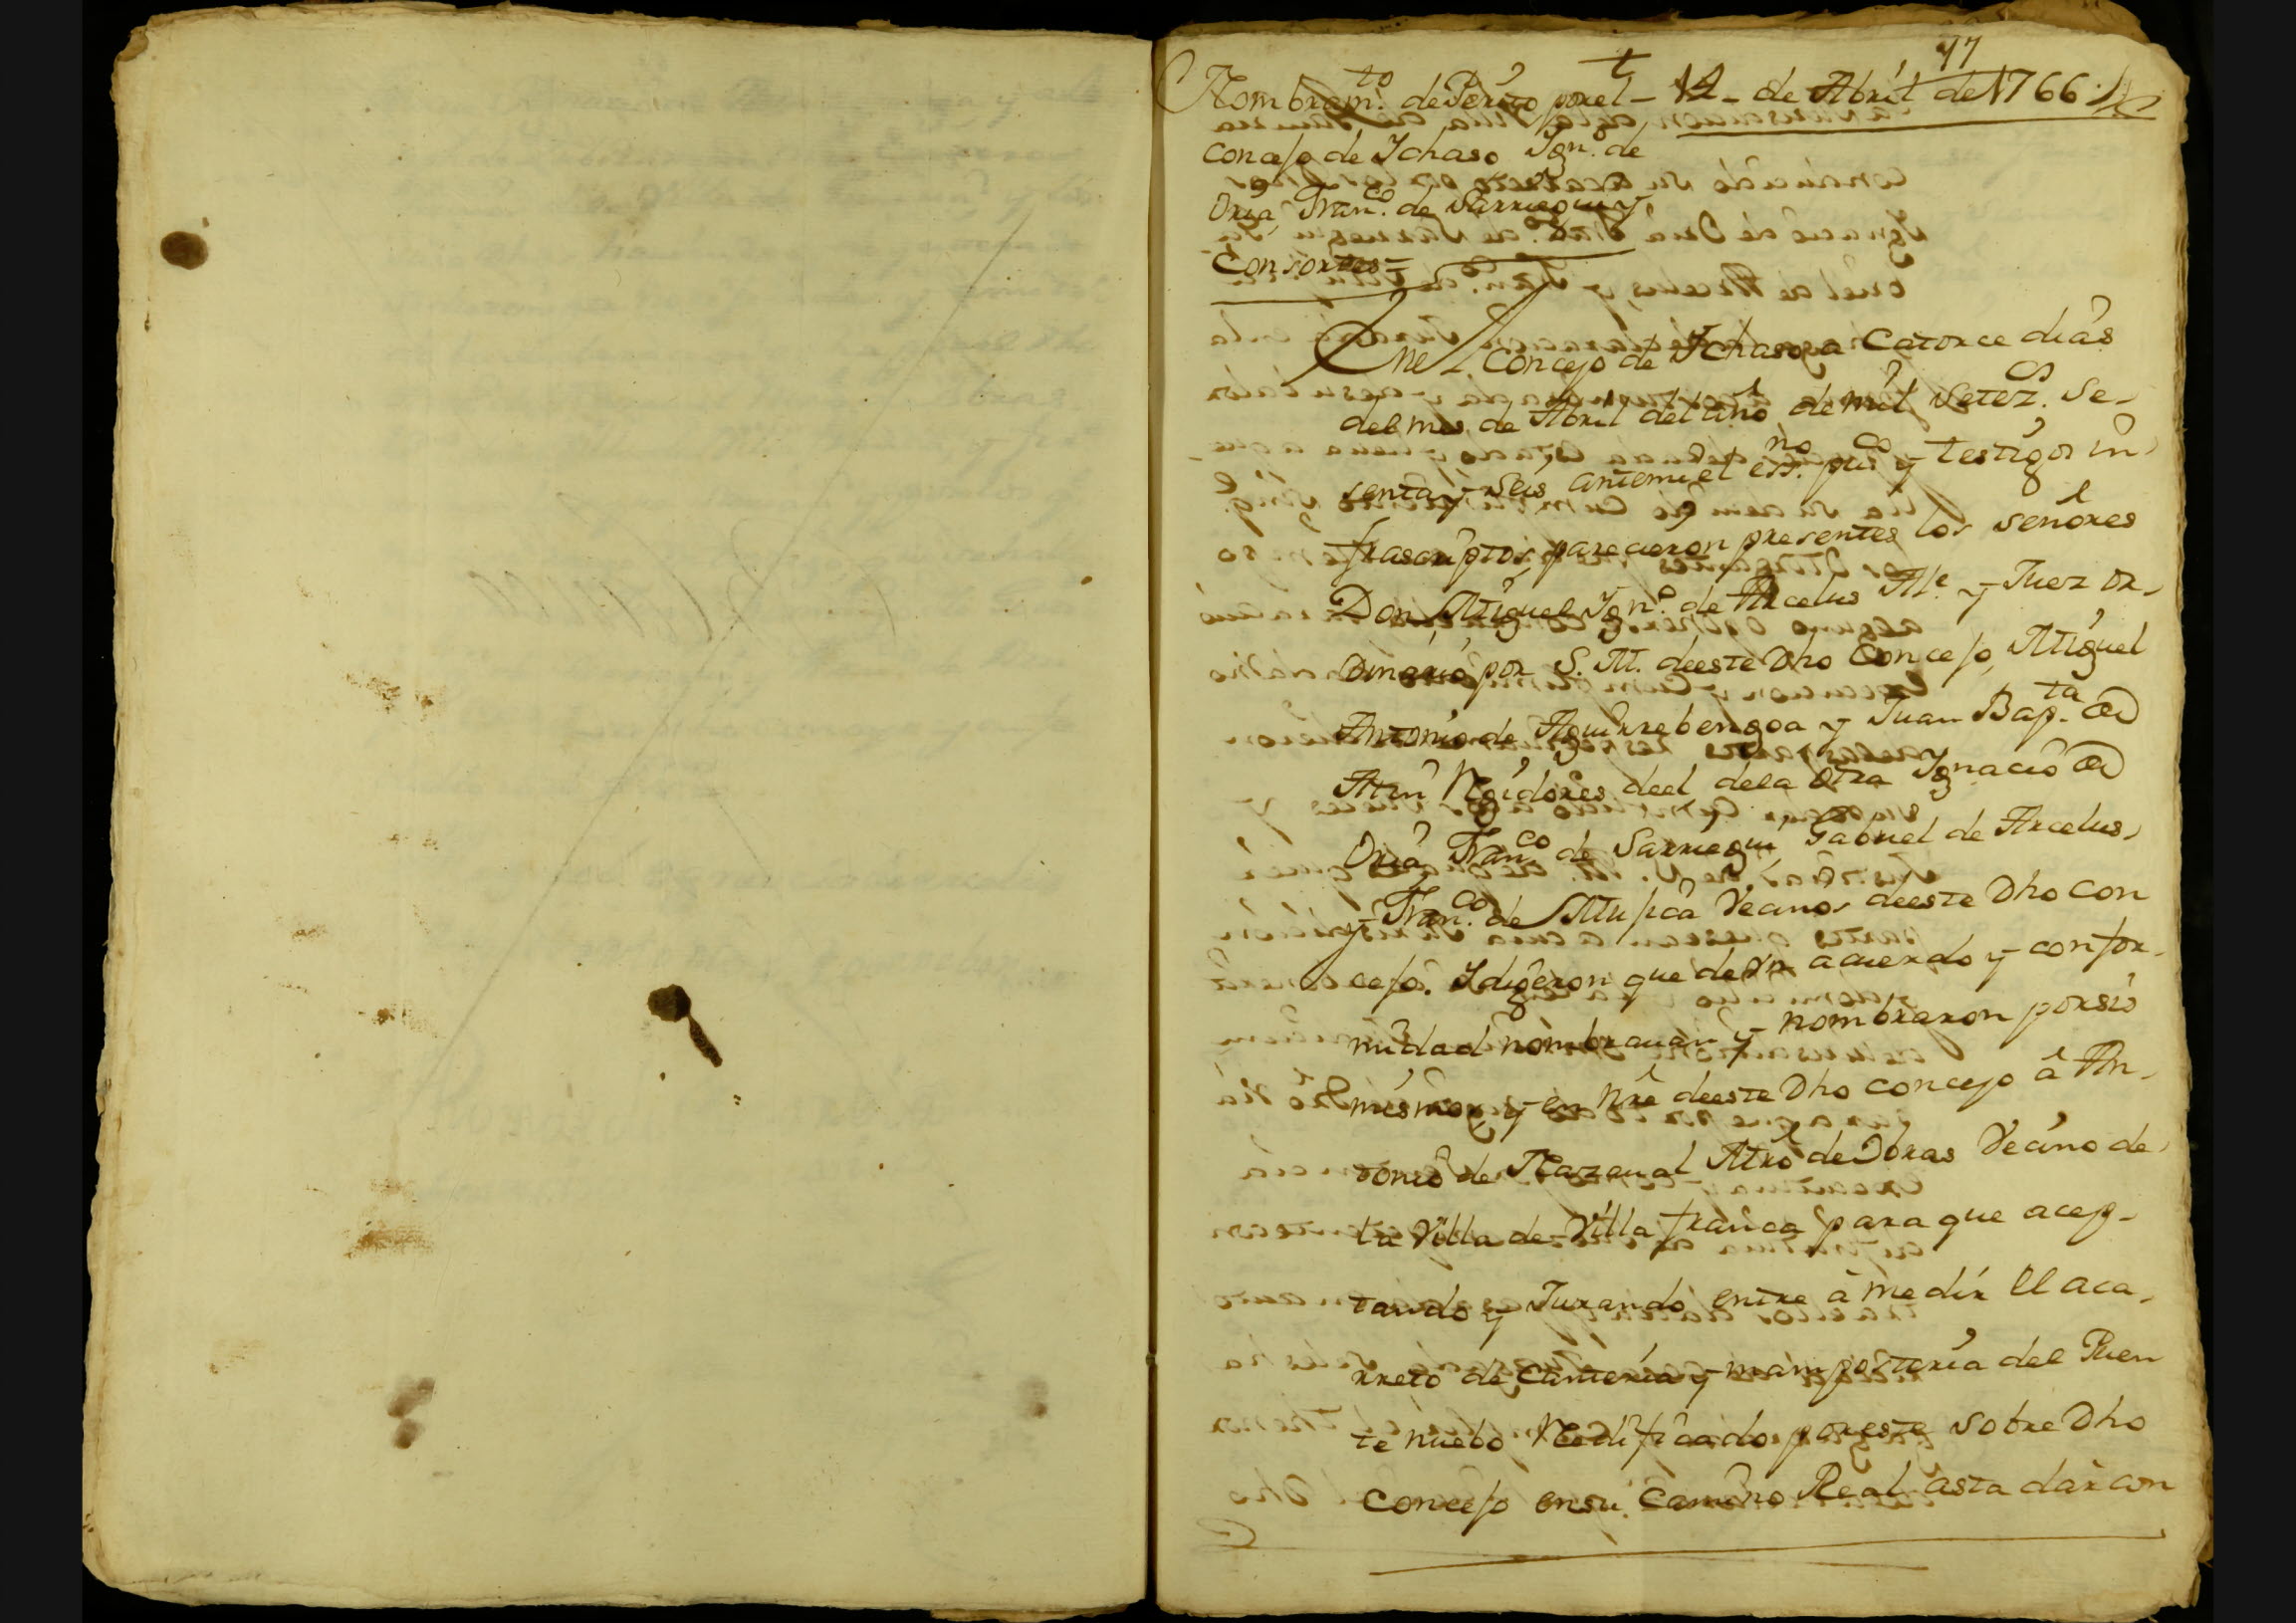 77
Nombram.to de Perito por el - 14 - de Abril de 1766
Concejo de Ychaso Ygn.o de
Oria Fran.co de Sarriegui y
Consortes =
En el Concejo de Ychaso a Catorce dias
del mes de Abril del año de mil Setez.os Se-
senta y Seis ante mi el ess.no pu.co y testigos in-
frascriptos, parecieron presentes los señores
Don Miguel Ygn.o de Arcelus Al.e y Juez or-
dinario por S. M. de este Dho Concejo, Miguel
Antonio de Aguirrebengoa y Juan Bap.ta de
Atin Regidores de el de la otra Ygnacio de
Oria Fran.co de Sarriegui Gabriel de Arcelus
y Fran.co de Mujica Vecinos de este Dho con
cejo. Y digeron que de vn acuerdo y confor-
midad nombrauan y nombraron por sis
mismos, y en Nre de este Dho concejo â An-
tonio de Mtro de Obras Vecino de
la Villa de Villafranca para que acep-
tando y Jurando entre â medir el aca-
rreto de Canteria y mamposteria del Puen
te nuebo Reedificado por este sobre Dho
Concejo en su Camino Real asta dar con